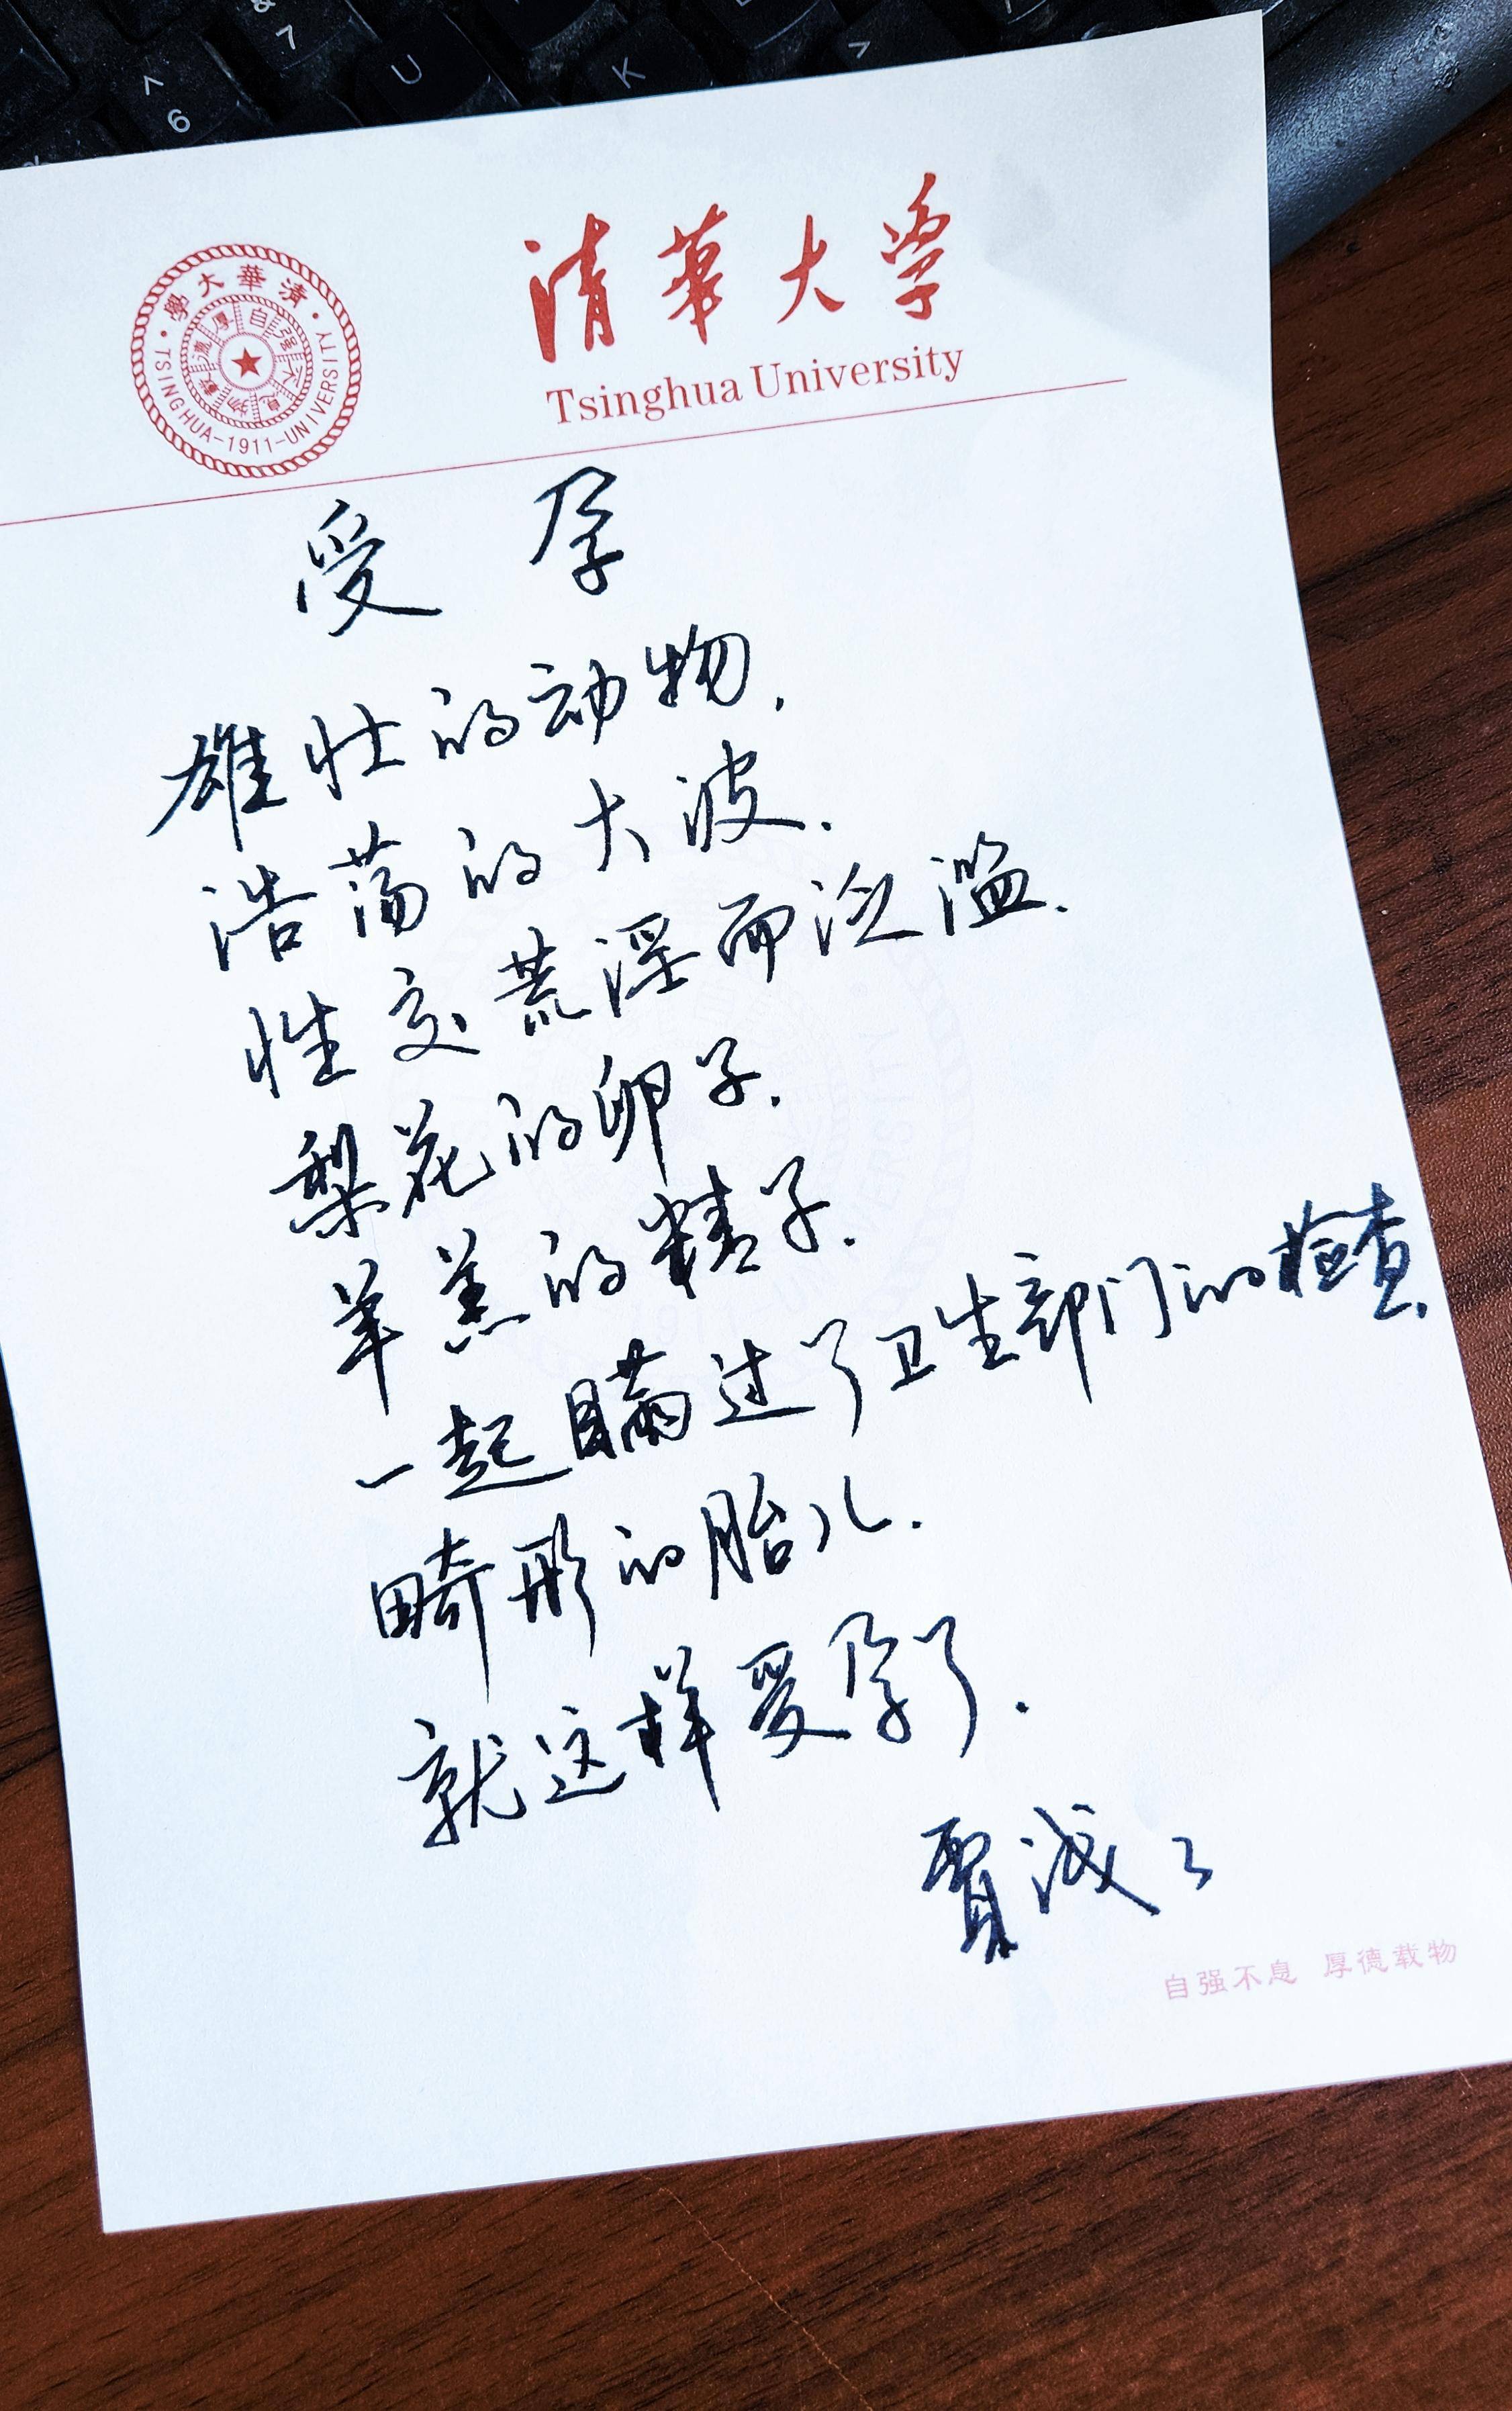 &
7
^
6
U
K
>
清華大学
Tsinghua University
清華大學
自强不息
厚德載物
TSINGHUA-1911-UNIVERSITY
受孕
雄壮的动物，
浩荡的大波．
性交荒淫而泛滥．
梨花的卵子．
羊羔的精子．
一起瞒过了卫生部门的检查
畸形的胎儿．
就这样受孕了．
贾浅浅
自强不息 厚德载物